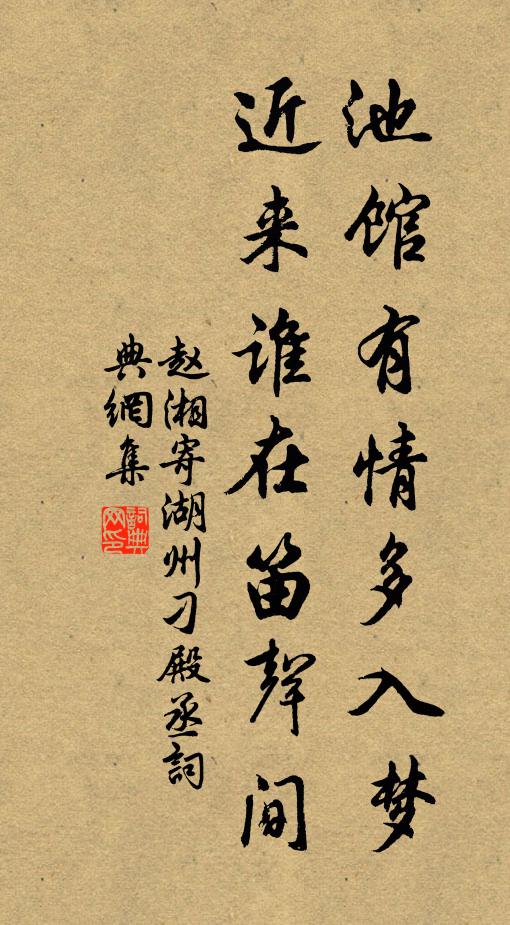 池馆有情多入梦
近来谁在笛聲间
赵湘寄湖州刁殿丞詞
典網集
詞典網印